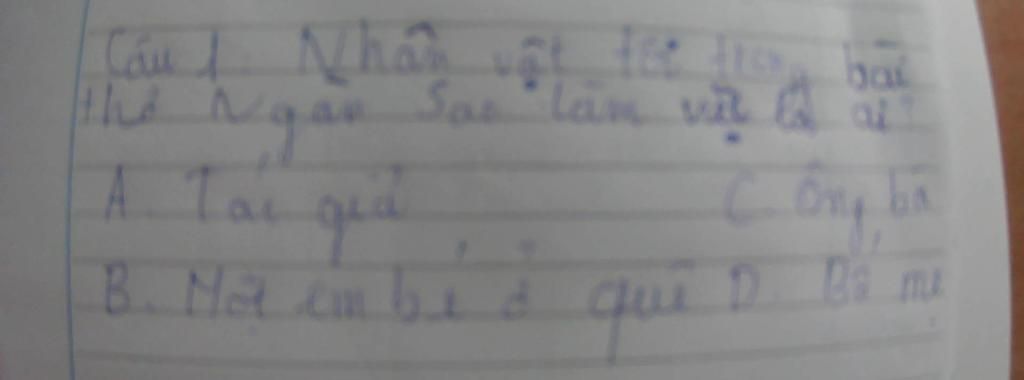 Câu 1. Nhân vật tôi trong bài
thơ Ngàn Sao làm việt là ai?
A. Tác giả C. Ông bà
B. Một em bé ở quê D. Bố mẹ